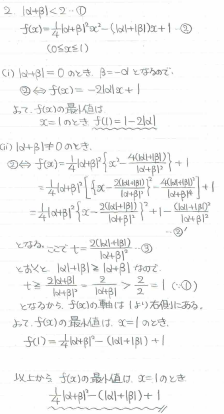 2. |α+β|<2 …①
f(x)=1/4|α+β|²x²−(|α|+|β|)x+1 …②
(0≤x≤1)
(i) |α+β|=0のとき, β=−αとなるので,
②⇔ f(x)=−2|α|x+1
よって, f(x)の最小値は
x=1のとき f(1)=1−2|α|
(ii) |α+β|≠0のとき,
②⇔ f(x)=1/4|α+β|²{x²−4(|α|+|β|)/|α+β|² x}+1
=1/4|α+β|²[{x−2(|α|+|β|)/|α+β|²}²−4(|α|+|β|)²/|α+β|⁴]+1
=1/4|α+β|²{x−2(|α|+|β|)/|α+β|²}²+1−(|α|+|β|)²/|α+β|²
…②'
となる. ここで t=2(|α|+|β|)/|α+β|² …③
とおくと, |α|+|β|≧|α+β| なので,
t≧2|α+β|/|α+β|²=2/|α+β|>2/2=1 (∵①)
となるから, f(x)の軸は1より右側にある。
よって, f(x)の最小値は, x=1のとき,
f(1)=1/4|α+β|²−(|α|+|β|)+1
以上から f(x)の最小値は, x=1のとき
1/4|α+β|²−(|α|+|β|)+1